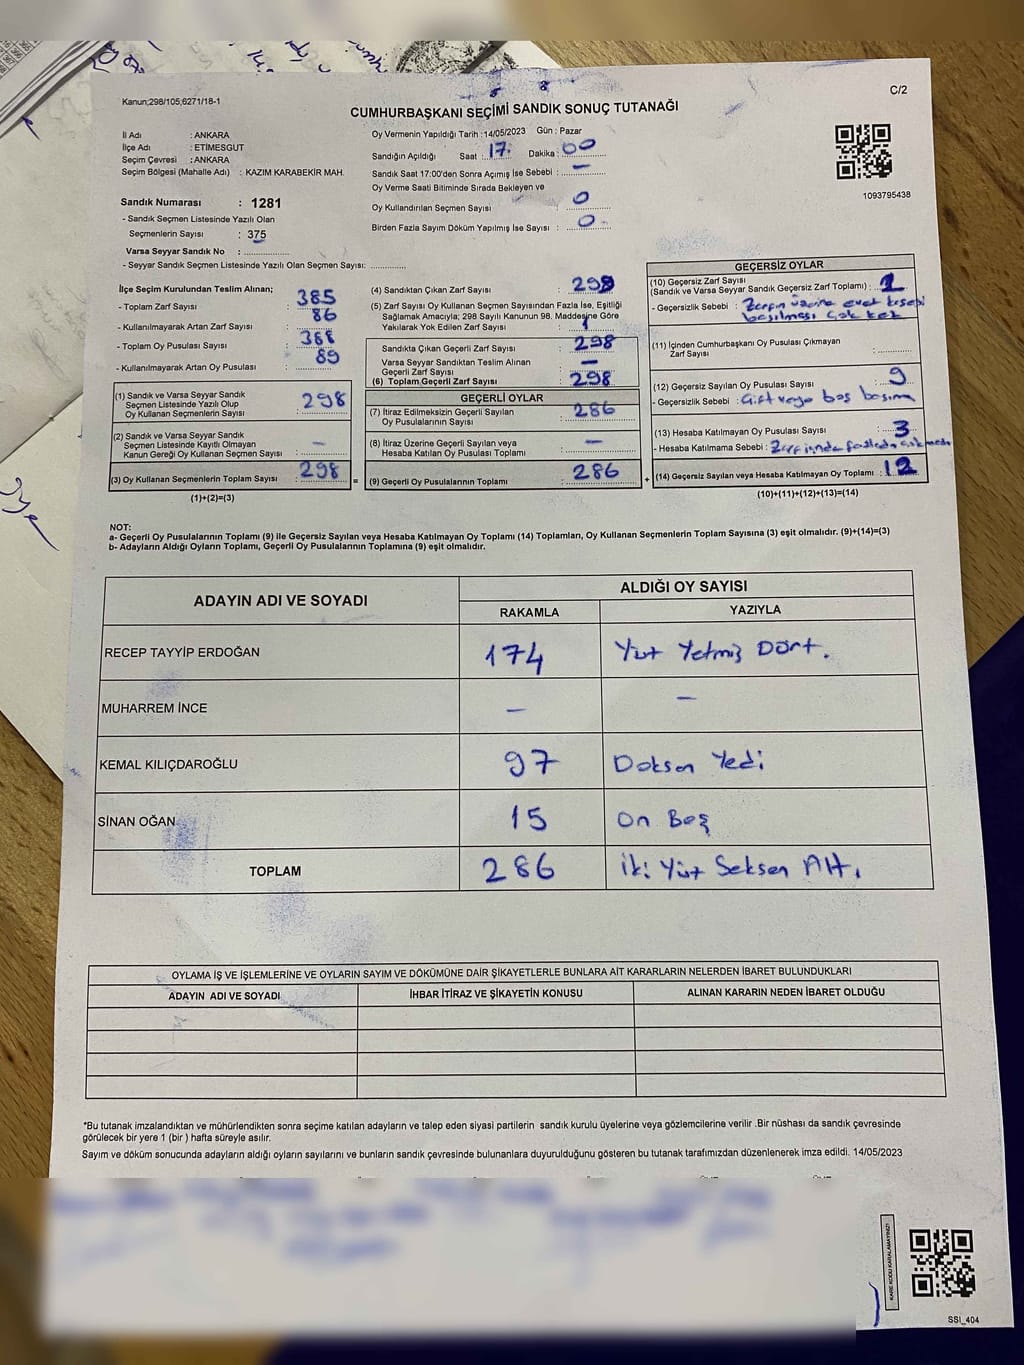 C/2
Kanun;298/105,6271/18-1
CUMHURBAŞKANI SEÇİMİ SANDIK SONUÇ TUTANAĞI
İl Adı : ANKARA
İlçe Adı : ETİMESGUT
Seçim Çevresi : ANKARA
Seçim Bölgesi (Mahalle Adı) : KAZIM KARABEKİR MAH.
Sandık Numarası : 1281
- Sandık Seçmen Listesinde Yazılı Olan
Seçmenlerin Sayısı : 375
Varsa Seyyar Sandık No : ...............
- Seyyar Sandık Seçmen Listesinde Yazılı Olan Seçmen Sayısı: ............
Oy Vermenin Yapıldığı Tarih :14/05/2023 Gün : Pazar
Sandığın Açıldığı Saat : 17 Dakika : 00
Sandık Saat 17:00'den Sonra Açımış İse Sebebi : –
Oy Verme Saati Bitiminde Sırada Bekleyen ve
Oy Kullandırılan Seçmen Sayısı : 0
Birden Fazla Sayım Döküm Yapılmış İse Sayısı : 0
1093795438
İlçe Seçim Kurulundan Teslim Alınan;
- Toplam Zarf Sayısı : 385
- Kullanılmayarak Artan Zarf Sayısı : 86
- Toplam Oy Pusulası Sayısı : 388
- Kullanılmayarak Artan Oy Pusulası : 89
(1) Sandık ve Varsa Seyyar Sandık
Seçmen Listesinde Yazılı Olup
Oy Kullanan Seçmenlerin Sayısı : 298
(2) Sandık ve Varsa Seyyar Sandık
Seçmen Listesinde Kayıtlı Olmayan
Kanun Gereği Oy Kullanan Seçmen Sayısı : –
(3) Oy Kullanan Seçmenlerin Toplam Sayısı : 298
(1)+(2)=(3)
(4) Sandıktan Çıkan Zarf Sayısı : 299
(5) Zarf Sayısı Oy Kullanan Seçmen Sayısından Fazla İse, Eşitliği
Sağlamak Amacıyla; 298 Sayılı Kanunun 98. Maddesine Göre
Yakılarak Yok Edilen Zarf Sayısı : 1
Sandıkta Çıkan Geçerli Zarf Sayısı : 298
Varsa Seyyar Sandıktan Teslim Alınan
Geçerli Zarf Sayısı : –
(6) Toplam Geçerli Zarf Sayısı : 298
GEÇERLİ OYLAR
(7) İtiraz Edilmeksizin Geçerli Sayılan
Oy Pusulalarının Sayısı : 286
(8) İtiraz Üzerine Geçerli Sayılan veya
Hesaba Katılan Oy Pusulası Toplamı : –
(9) Geçerli Oy Pusulalarının Toplamı : 286
GEÇERSİZ OYLAR
(10) Geçersiz Zarf Sayısı
(Sandık ve Varsa Seyyar Sandık Geçersiz Zarf Toplamı) :
- Geçersizlik Sebebi : Zarfın üzerine evet kaşesi
basılması
(11) İçinden Cumhurbaşkanı Oy Pusulası Çıkmayan
Zarf Sayısı : ............
(12) Geçersiz Sayılan Oy Pusulası Sayısı : 9
- Geçersizlik Sebebi : Çift veya boş basım
(13) Hesaba Katılmayan Oy Pusulası Sayısı : 3
- Hesaba Katılmama Sebebi : Zarf içinde fazladan çıkması
(14) Geçersiz Sayılan veya Hesaba Katılmayan Oy Toplamı : 12
(10)+(11)+(12)+(13)=(14)
NOT:
a- Geçerli Oy Pusulalarının Toplamı (9) ile Geçersiz Sayılan veya Hesaba Katılmayan Oy Toplamı (14) Toplamları, Oy Kullanan Seçmenlerin Toplam Sayısına (3) eşit olmalıdır. (9)+(14)=(3)
b- Adayların Aldığı Oyların Toplamı, Geçerli Oy Pusulalarının Toplamına (9) eşit olmalıdır.
ADAYIN ADI VE SOYADI ALDIĞI OY SAYISI
RAKAMLA YAZIYLA
RECEP TAYYİP ERDOĞAN 174 Yüz Yetmiş Dört.
MUHARREM İNCE – –
KEMAL KILIÇDAROĞLU 97 Doksan Yedi
SİNAN OĞAN 15 On Beş
TOPLAM 286 İki Yüz Seksen Altı
OYLAMA İŞ VE İŞLEMLERİNE VE OYLARIN SAYIM VE DÖKÜMÜNE DAİR ŞİKAYETLERLE BUNLARA AİT KARARLARIN NELERDEN İBARET BULUNDUKLARI
ADAYIN ADI VE SOYADI İHBAR İTİRAZ VE ŞİKAYETİN KONUSU ALINAN KARARIN NEDEN İBARET OLDUĞU
*Bu tutanak imzalandıktan ve mühürlendikten sonra seçime katılan adayların ve talep eden siyasi partilerin sandık kurulu üyelerine veya gözlemcilerine verilir .Bir nüshası da sandık çevresinde
görülecek bir yere 1 (bir ) hafta süreyle asılır.
Sayım ve döküm sonucunda adayların aldığı oyların sayılarını ve bunların sandık çevresinde bulunanlara duyurulduğunu gösteren bu tutanak tarafımızdan düzenlenerek imza edildi. 14/05/2023
KARE KODU KARALAMAYINIZ!
SSI_404